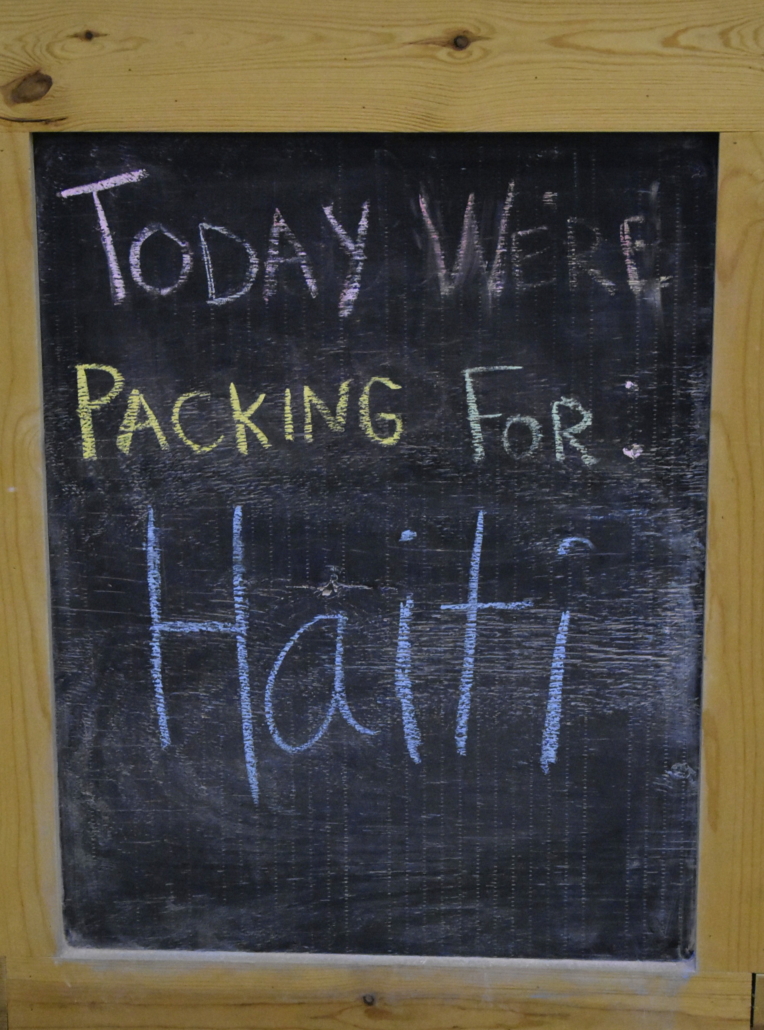 TODAY WE'RE
PACKING FOR:
Haiti